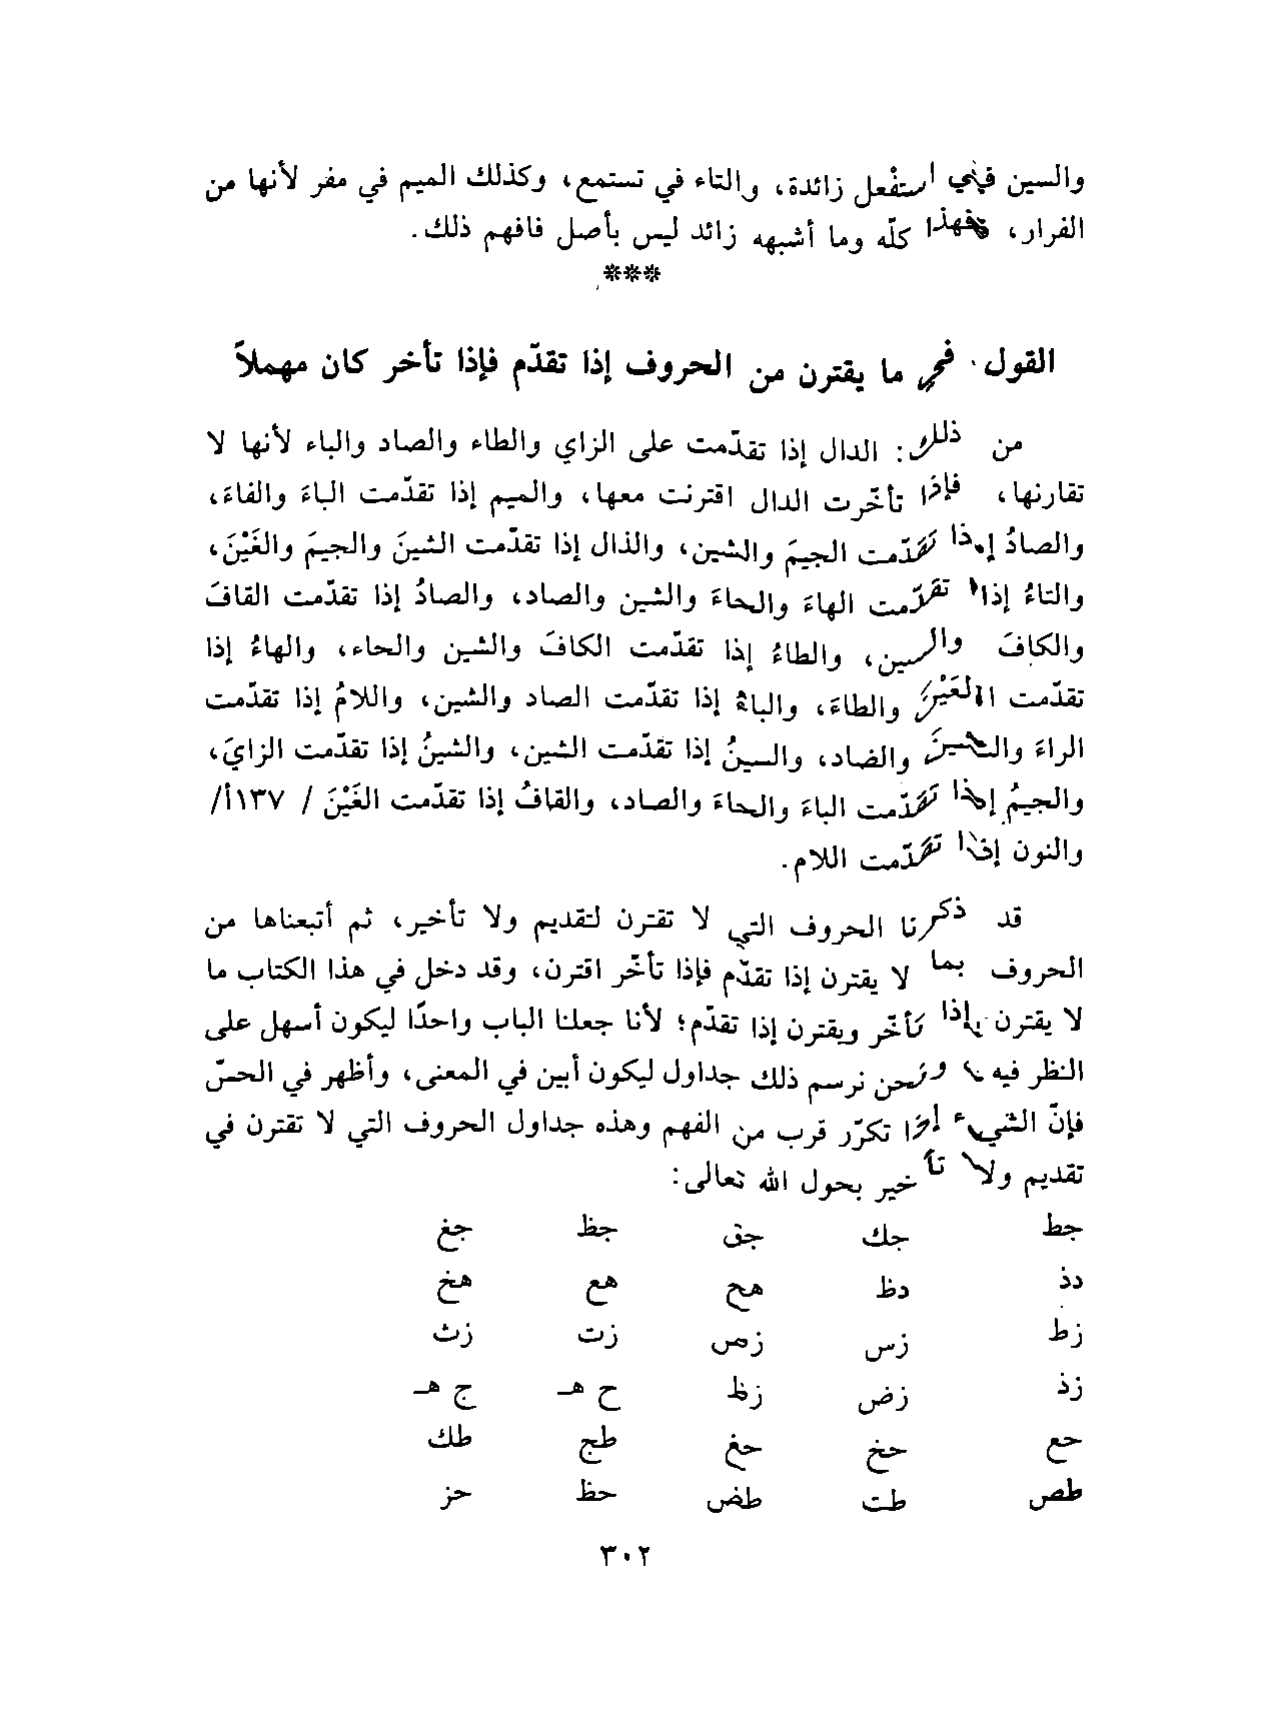 والسين في استفْعل زائدة، والتاء في تستمع، وكذلك الميم في مفر لأنها من
الفرار، فهذا كلّه وما أشبهه زائد ليس بأصل فافهم ذلك.
***
القول في ما يقترن من الحروف إذا تقدّم فإذا تأخر كان مهملاً
من ذلك: الدال إذا تقدّمت على الزاي والطاء والصاد والباء لأنها لا
تقارنها، فإذا تأخّرت الدال اقترنت معها، والميم إذا تقدّمت الباءَ والفاءَ،
والصادُ إذا تقدّمت الجيمَ والشين، والذال إذا تقدّمت الشينَ والجيمَ والغَيْنَ،
والتاءُ إذا تقدّمت الهاءَ والحاءَ والشين والصاد، والصادُ إذا تقدّمت القافَ
والكافَ والسين، والطاءُ إذا تقدّمت الكافَ والشين والحاء، والهاءُ إذا
تقدّمت الغَيْنَ والطاءَ، والباءُ إذا تقدّمت الصاد والشين، واللامُ إذا تقدّمت
الراءَ والشينَ والضاد، والسينُ إذا تقدّمت الشين، والشينُ إذا تقدّمت الزايَ،
والجيمُ إذا تقدّمت الباءَ والحاءَ والصاد، والقافُ إذا تقدّمت الغَيْنَ / ١٣٧أ/
والنون إذا تقدّمت اللام.
قد ذكرنا الحروف التي لا تقترن لتقديم ولا تأخير، ثم أتبعناها من
الحروف بما لا يقترن إذا تقدّم فإذا تأخّر اقترن، وقد دخل في هذا الكتاب ما
لا يقترن إذا تأخّر ويقترن إذا تقدّم؛ لأنا جعلنا الباب واحدًا ليكون أسهل على
النظر فيه، ونحن نرسم ذلك جداول ليكون أبين في المعنى، وأظهر في الحسّ
فإنّ الشيء إذا تكرّر قرب من الفهم وهذه جداول الحروف التي لا تقترن في
تقديم ولا تأخير بحول الله تعالى:
جط جك جق جظ جغ
دذ دظ هح هع هخ
زط زس زص زت زث
زذ زض زظ ح هـ ج هـ
حع حخ حغ طج طك
طص طت طض حظ حز
٣٠٢